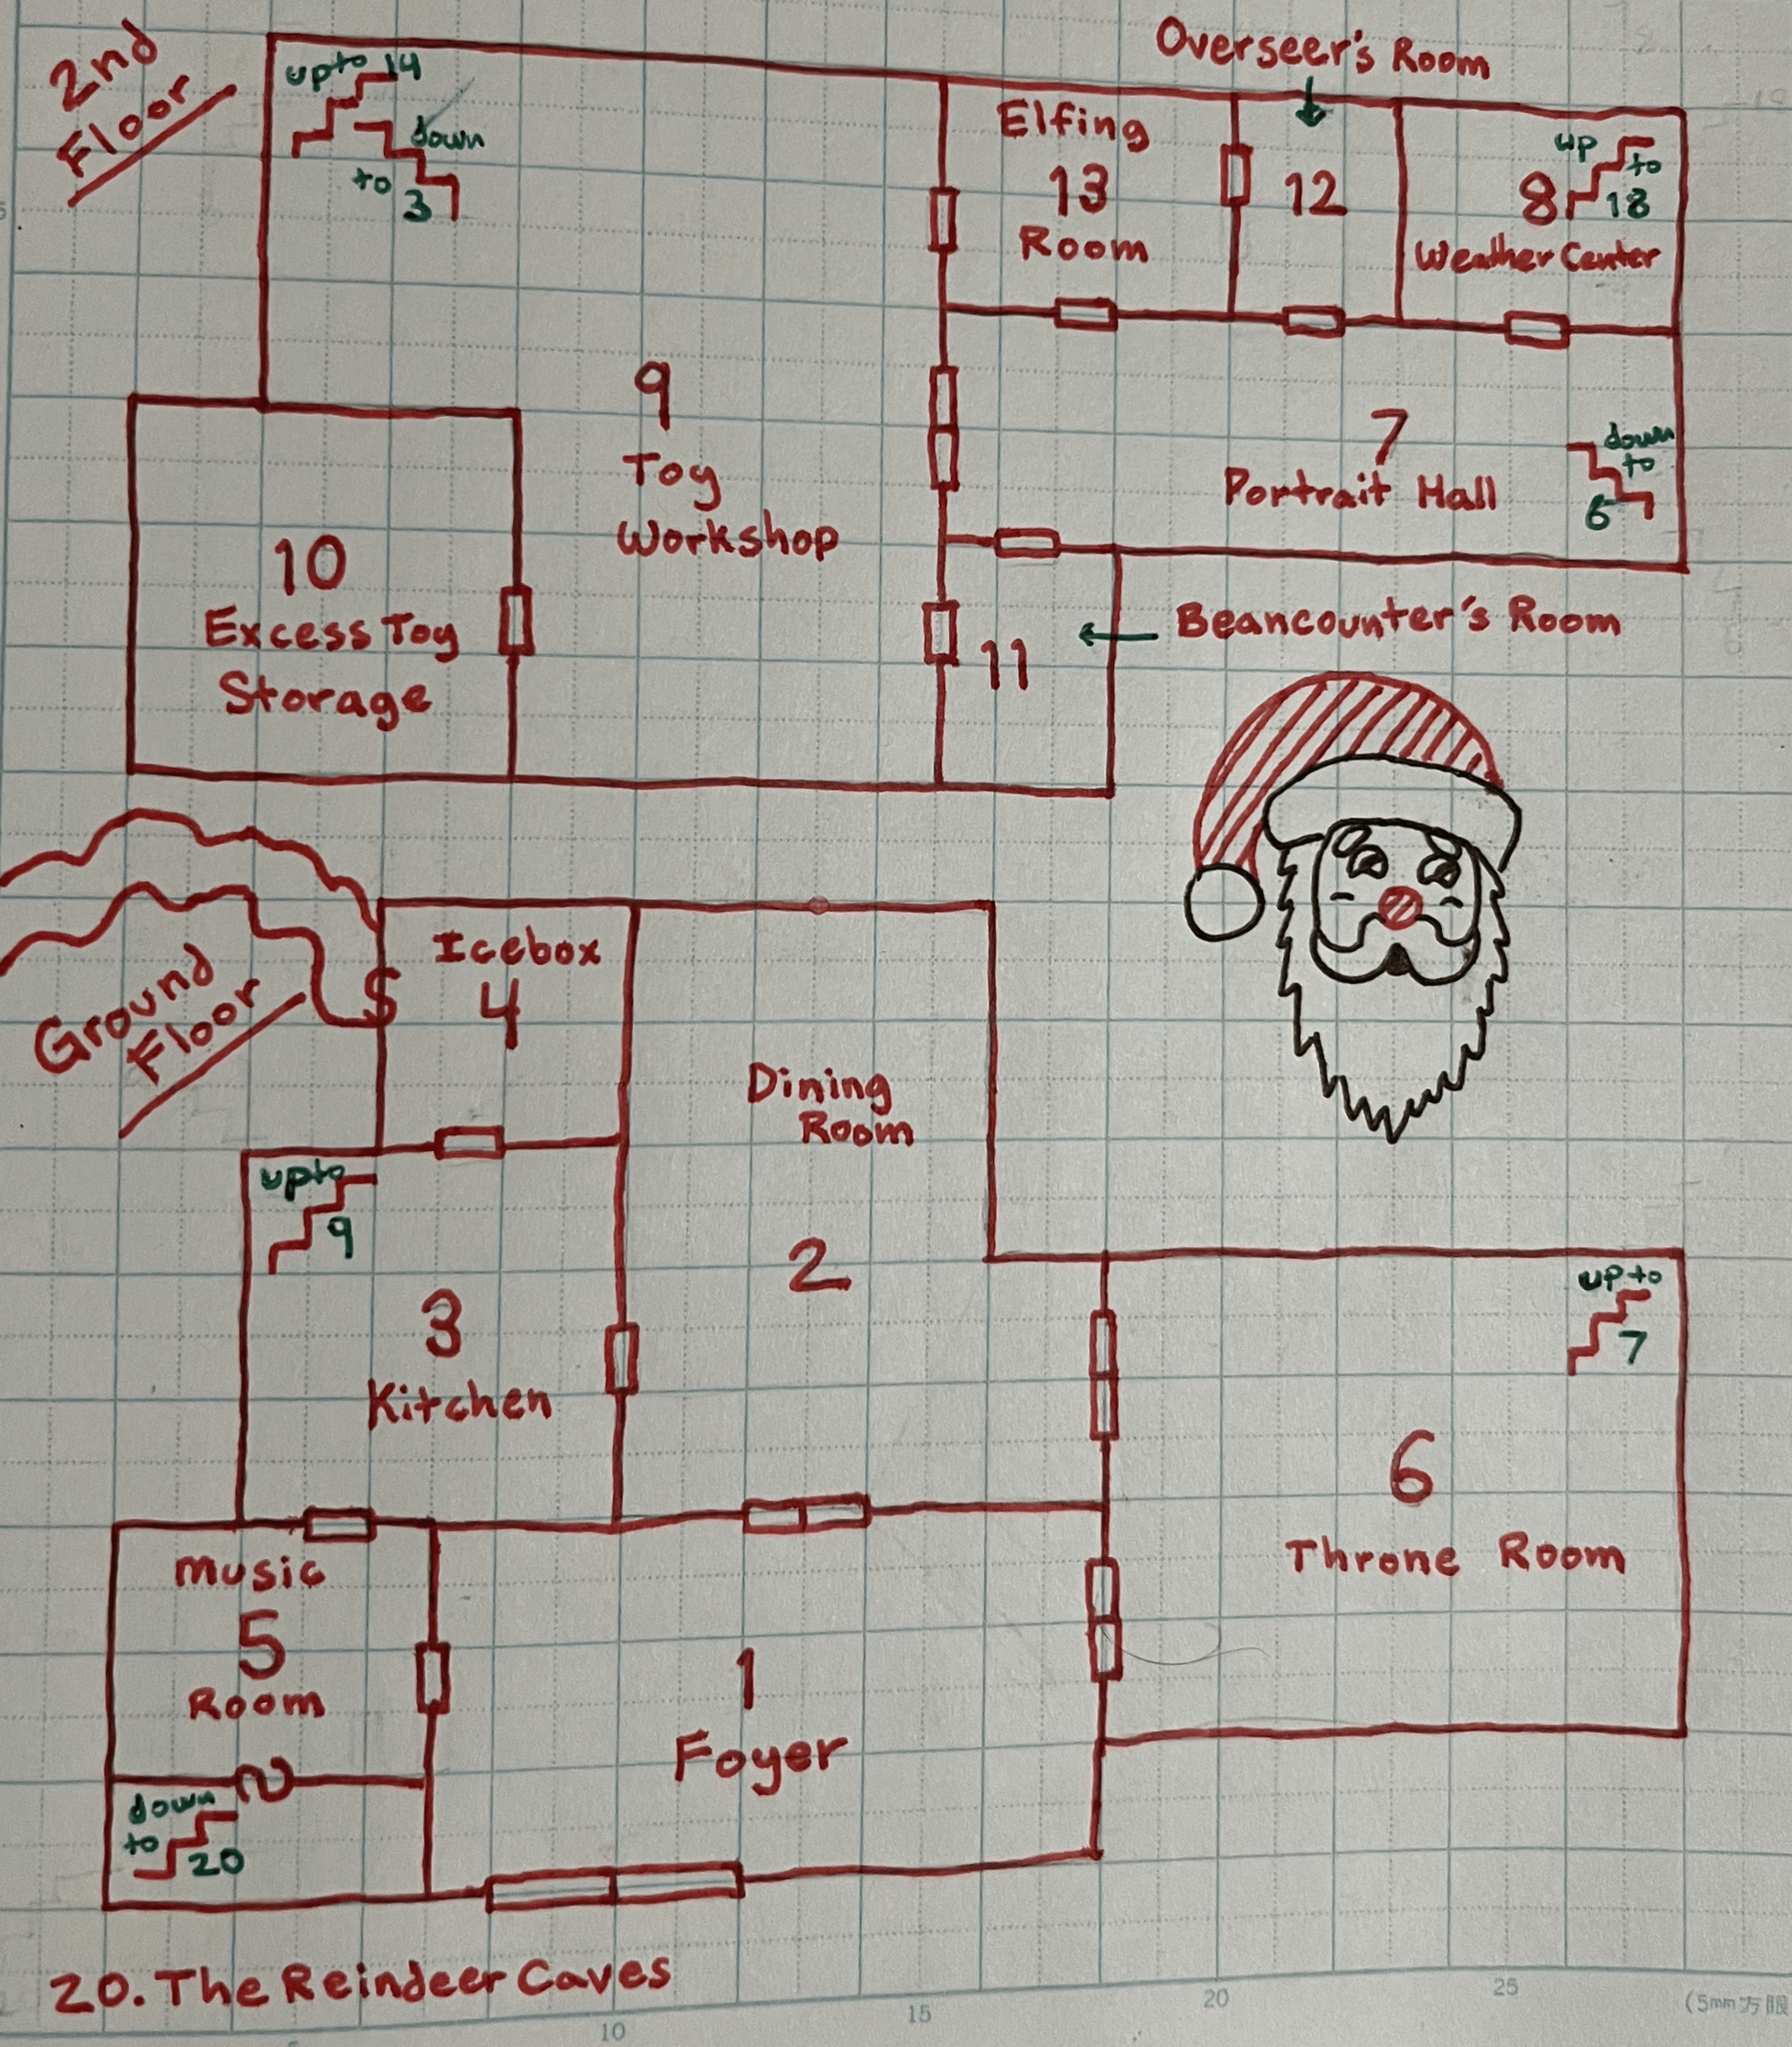 2nd
Floor
up to 14
down
to 3
Elfing
13
Room
Overseer's Room
12
up
to
8 18
Weather Center
9
Toy
Workshop
7
Portrait Hall
down
to
6
10
Excess Toy
Storage
11
Beancounter's Room
Ground
Floor
S
Icebox
4
Dining
Room
2
up to
9
3
Kitchen
up to
7
6
Throne Room
Music
5
Room
1
Foyer
down
to
20
20. The Reindeer Caves
10
15
20
25
(5mm方眼